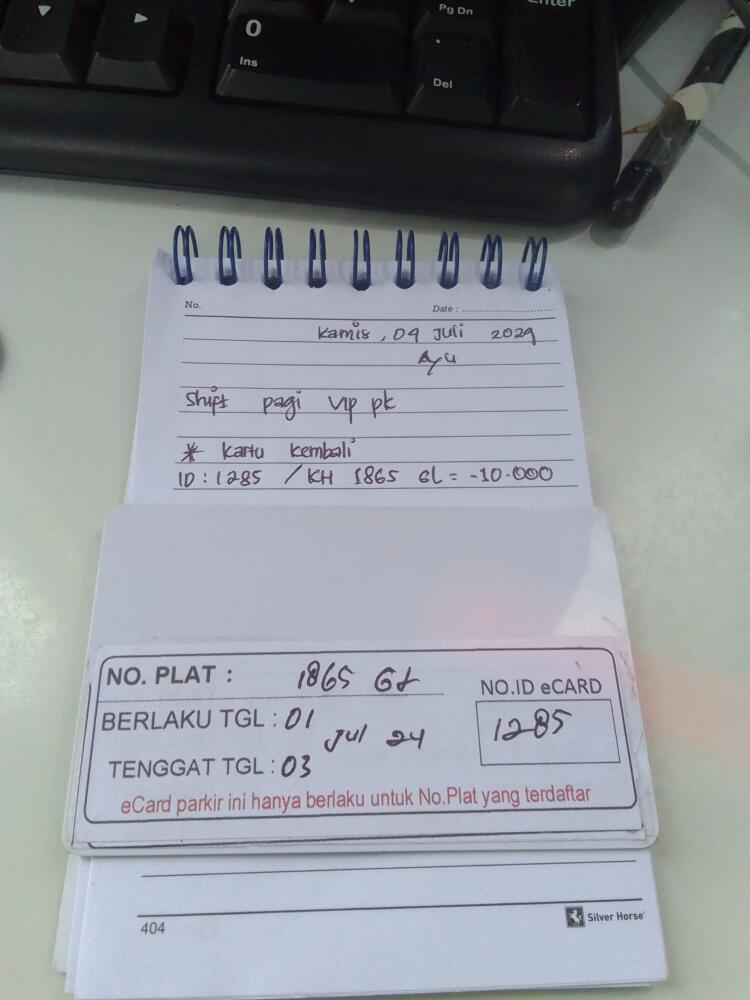 Pg Dn
Enter
0
Ins
.
Del
No.
Date : ..............................
Kamis, 04 Juli 2024
Ayu
Shift pagi VIP pk
* kartu kembali
ID : 1285 / KH 1865 GL = -10.000
NO. PLAT : 1865 GL
NO.ID eCARD
BERLAKU TGL : 01
1285
Jul 24
TENGGAT TGL : 03
eCard parkir ini hanya berlaku untuk No.Plat yang terdaftar
404
Silver Horse